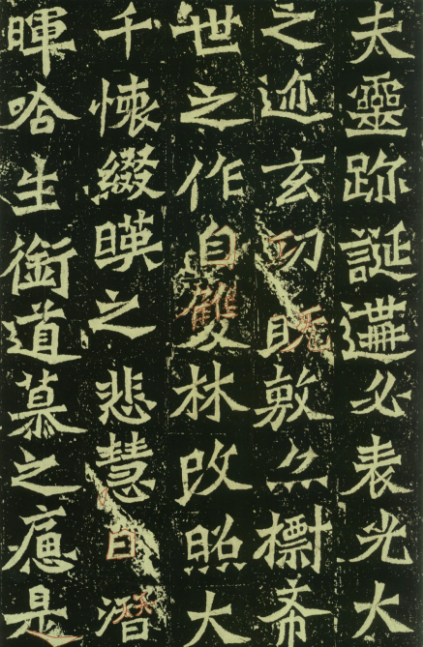 夫靈跡誕遘必表光大
之迹玄功既敷亦標希
世之作自雙林改照大
千懷綴暎之悲慧日潛
暉唅生銜道慕之痛是